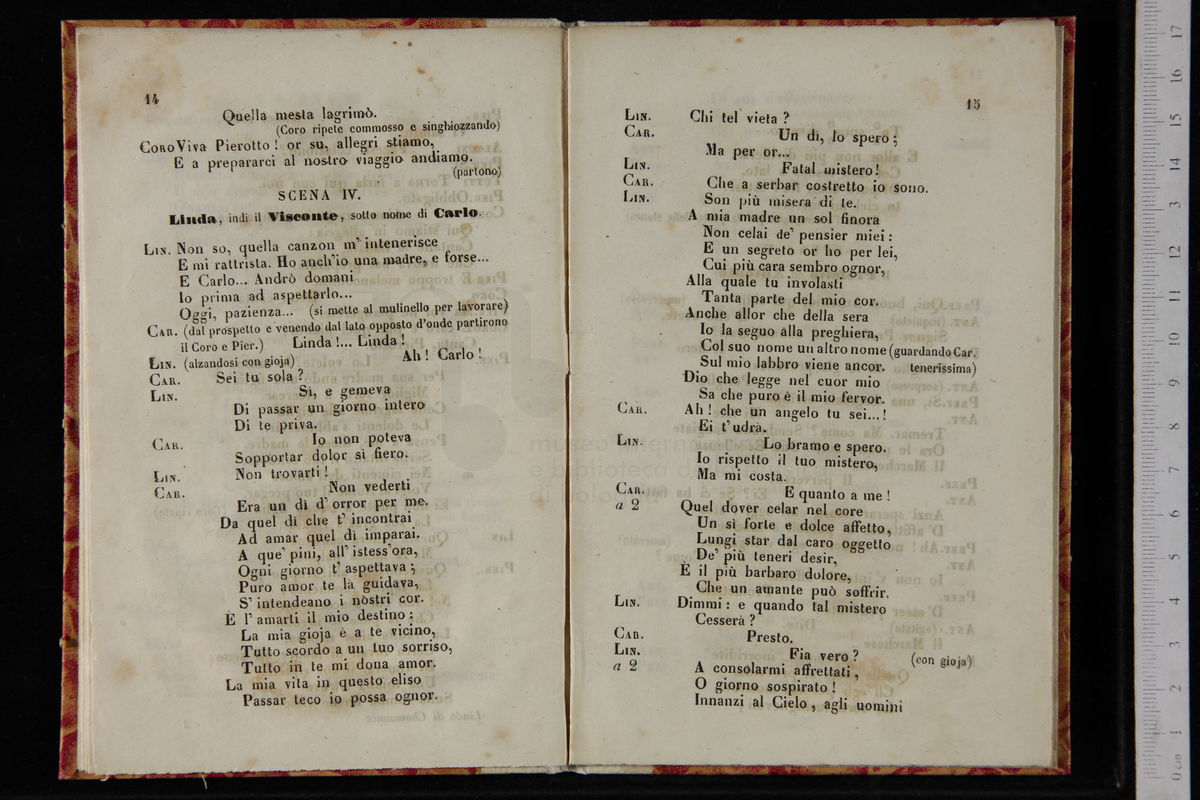 14
Quella mesta lagrimò.
(Coro ripete commosso e singhiozzando)
CORO Viva Pierotto! or su, allegri stiamo,
E a prepararci al nostro viaggio andiamo.
(partono)
SCENA IV.
Linda, indi il Visconte, sotto nome di Carlo.
LIN. Non so, quella canzon m'intenerisce
E mi rattrista. Ho anch'io una madre, e forse...
E Carlo... Andrò domani
Io prima ad aspettarlo...
Oggi, pazienza... (si mette al mulinello per lavorare)
CAR. (dal prospetto e venendo dal lato opposto d'onde partirono
il Coro e Pier.) Linda!... Linda!
LIN. (alzandosi con gioja) Ah! Carlo!
CAR. Sei tu sola?
LIN. Sì, e gemeva
Di passar un giorno intero
Di te priva.
CAR. Io non poteva
Sopportar dolor sì fiero.
LIN. Non trovarti!
CAR. Non vederti
Era un dì d'orror per me.
Da quel dì che t'incontrai
Ad amar quel dì imparai.
A que' pini, all'istess'ora,
Ogni giorno t'aspettava;
Puro amor te là guidava,
S'intendeano i nòstri cor.
È l'amarti il mio destino:
La mia gioja è a te vicino,
Tutto scordo a un tuo sorriso,
Tutto in te mi dona amor.
La mia vita in questo eliso
Passar teco io possa ognor.
15
LIN. Chi tel vieta?
CAR. Un dì, lo spero;
Ma per or...
LIN. Fatal mistero!
CAR. Che a serbar costretto io sono.
LIN. Son più misera di te.
A mia madre un sol finora
Non celai de' pensier miei:
E un segreto or ho per lei,
Cui più cara sembro ognor,
Alla quale tu involasti
Tanta parte del mio cor.
Anche allor che della sera
Io la seguo alla preghiera,
Col suo nome un altro nome (guardando Car.
Sul mio labbro viene ancor. tenerissima)
Dio che legge nel cuor mio
Sa che puro è il mio fervor.
CAR. Ah! che un angelo tu sei...!
Ei t'udrà.
LIN. Lo bramo e spero.
Io rispetto il tuo mistero,
Ma mi costa.
CAR. E quanto a me!
a 2 Quel dover celar nel core
Un sì forte e dolce affetto,
Lungi star dal caro oggetto
De' più teneri desir,
È il più barbaro dolore,
Che un amante può soffrir.
LIN. Dimmi: e quando tal mistero
Cesserà?
CAR. Presto.
LIN. Fia vero? (con gioja)
a 2 A consolarmi affrettati,
O giorno sospirato!
Innanzi al Cielo, agli uomini